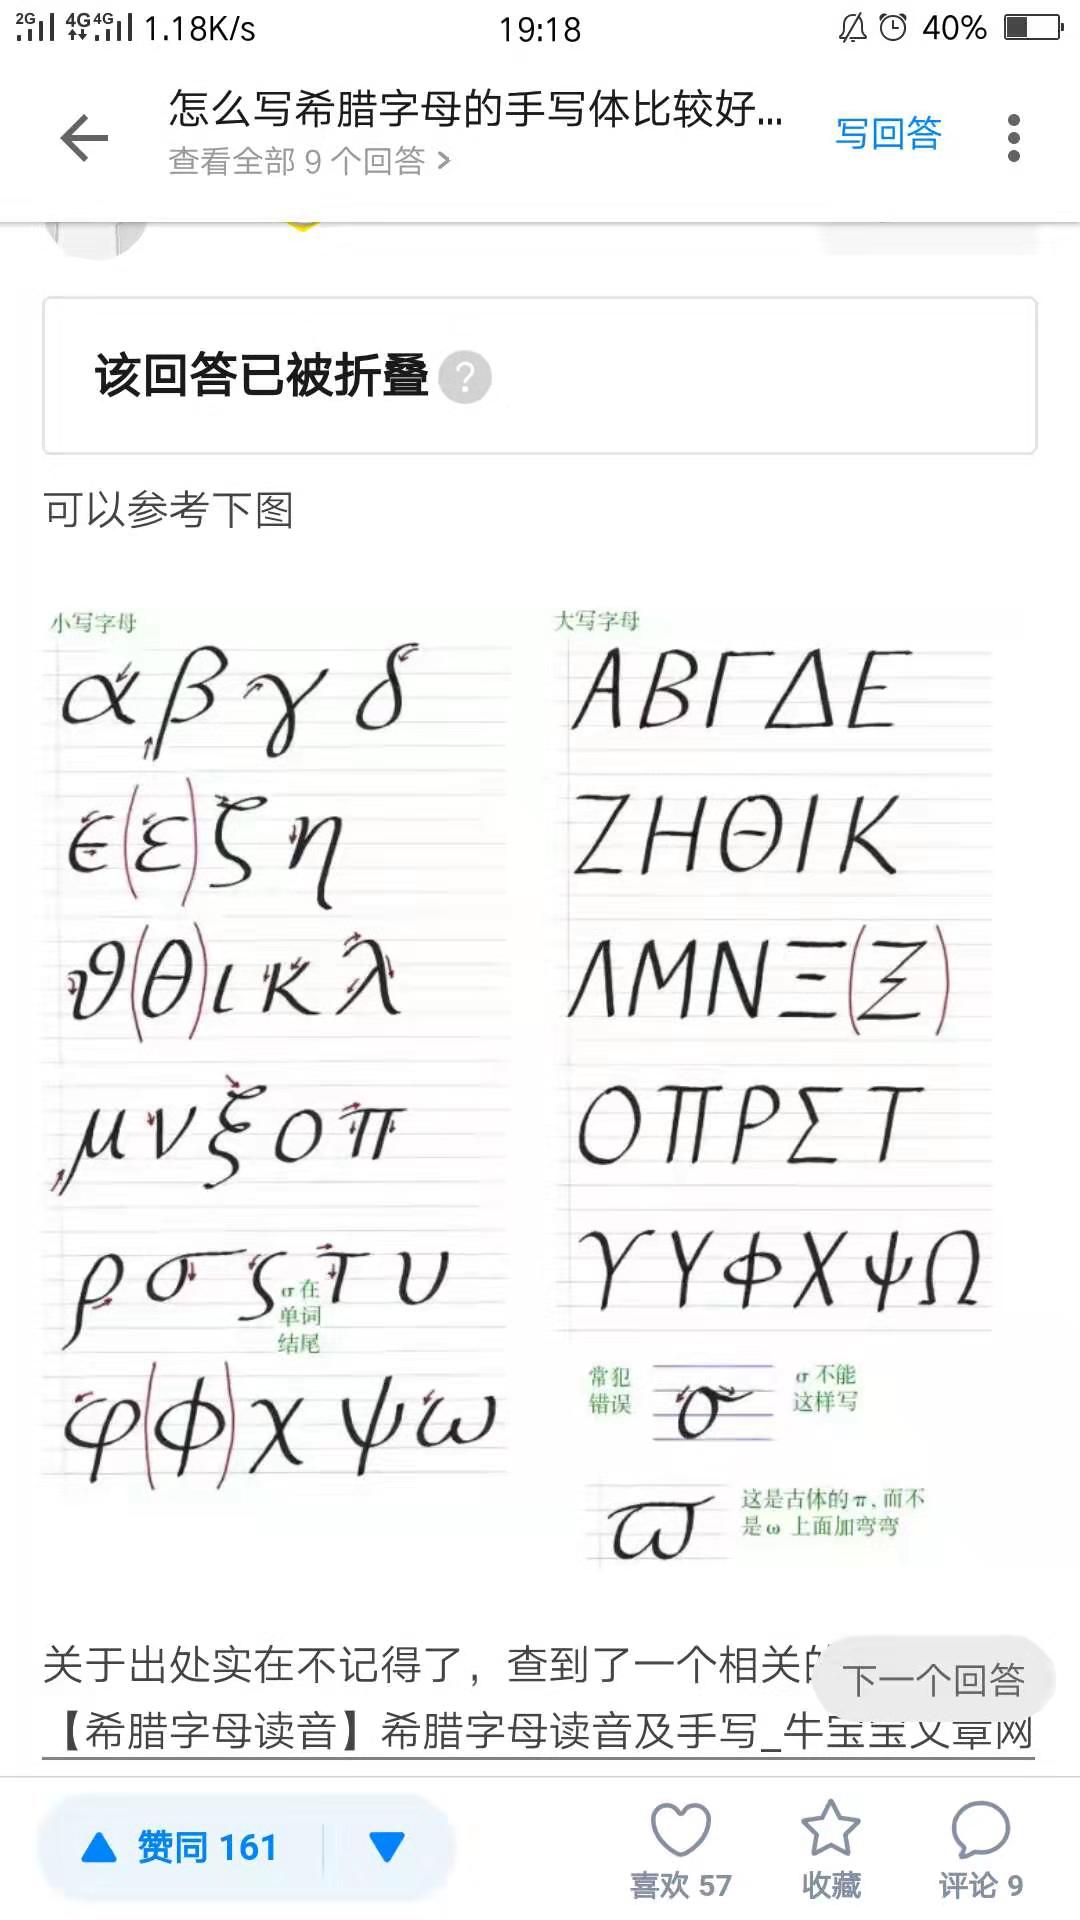 2G 4G 4G 1.18K/s 19:18 40%
怎么写希腊字母的手写体比较好...
查看全部 9 个回答 >
写回答
该回答已被折叠 ?
可以参考下图
小写字母
α β γ δ
ϵ (ε) ζ η
ϑ (θ) ι κ λ
μ ν ξ ο π
ρ σ ς τ υ
σ 在
单词
结尾
φ (ϕ) χ ψ ω
大写字母
Α Β Γ Δ Ε
Ζ Η Θ Ι Κ
Λ Μ Ν Ξ (Ξ)
Ο Π Ρ Σ Τ
ϒ Υ Φ Χ Ψ Ω
常犯
错误
σ
σ 不能
这样写
ϖ
这是古体的 π, 而不
是 ω 上面加弯弯
关于出处实在不记得了，查到了一个相关的
下一个回答
【希腊字母读音】希腊字母读音及手写_牛宝宝文章网
赞同 161
喜欢 57
收藏
评论 9